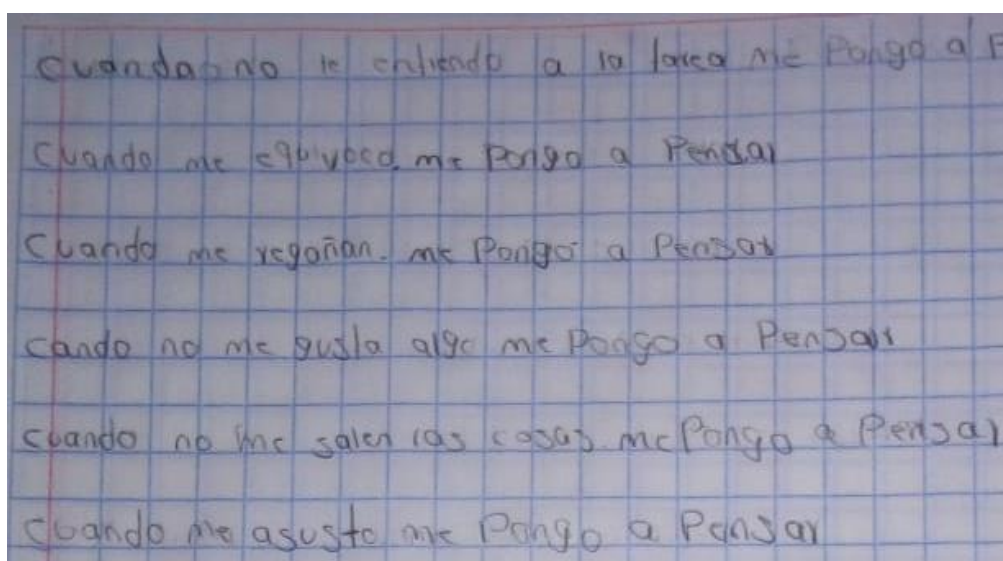 Cuando no le entiendo a la tarea me Pongo a P
Cuando me equivoco. me Pongo a Pensar
Cuando me regañan. me Pongo a Pensar
cando no me gusta algo me Pongo a Pensar
cuando no me salen las cosas me Pongo a Pensar
cuando me asusto me Pongo a Pensar